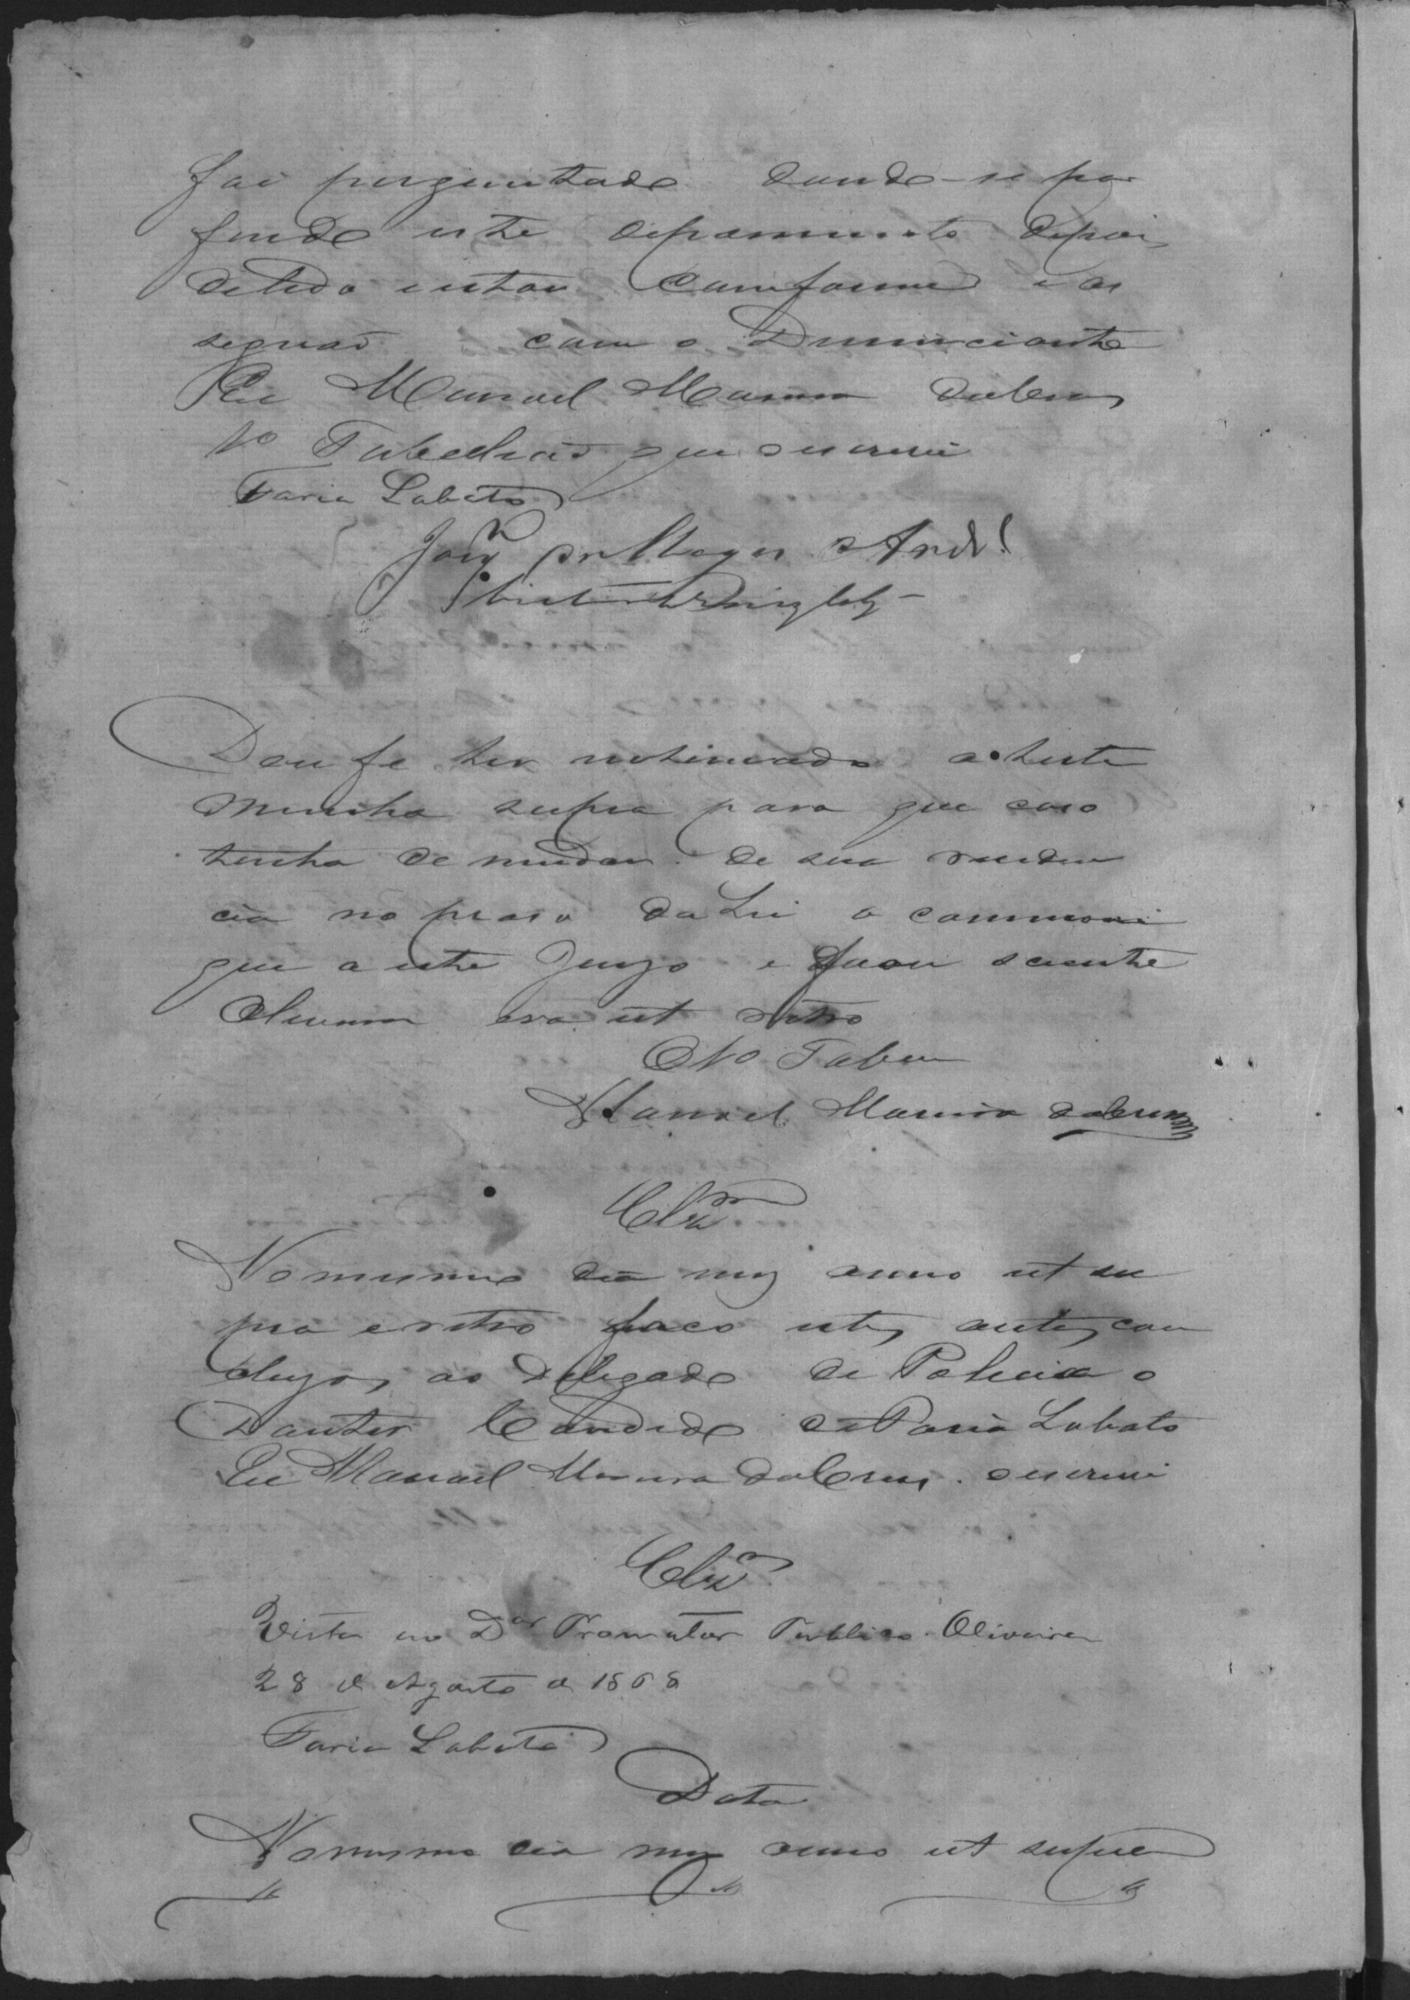 foi perguntado dando-se por
findo este depoimento depois
de lido estar conforme e as
signaõ com o Denunciante
Eu Manoel Moreira da Cruz
1º Tabelliaõ que escrevi
Faria Lobato
Joaqᵐ
Dou fe ter notificado a teste
munha supra para que caso
tenha de mudar de sua residen
cia no praso da Lei o communi
que a este Juizo e ficou sciente
Oliveira era ut retro
O 1º Tabam
Manoel Moreira da Cruz
Clzᵐ
No mesmo dia mez anno ut su
pra e retro faco estes autos con
cluzos ao Delegado de Policia o
Doutor Candido de Faria Lobato
Eu Manoel Moreira da Cruz escrevi
Clzᵐ
Vista ao Dᵒʳ Promotor Publico Oliveira
28 de Agosto de 1868
Faria Lobato
Data
No mesmo dia mez anno ut supra